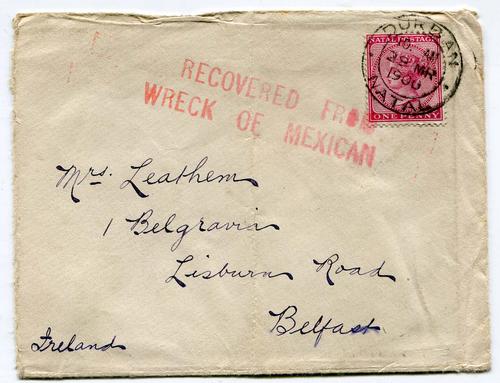 DURBAN
NATAL POSTAGE
28 MR
1900
NATAL
ONE PENNY
RECOVERED FROM
WRECK OF MEXICAN
Mrs. Leathem
1 Belgravia
Lisburn Road
Belfast
Ireland